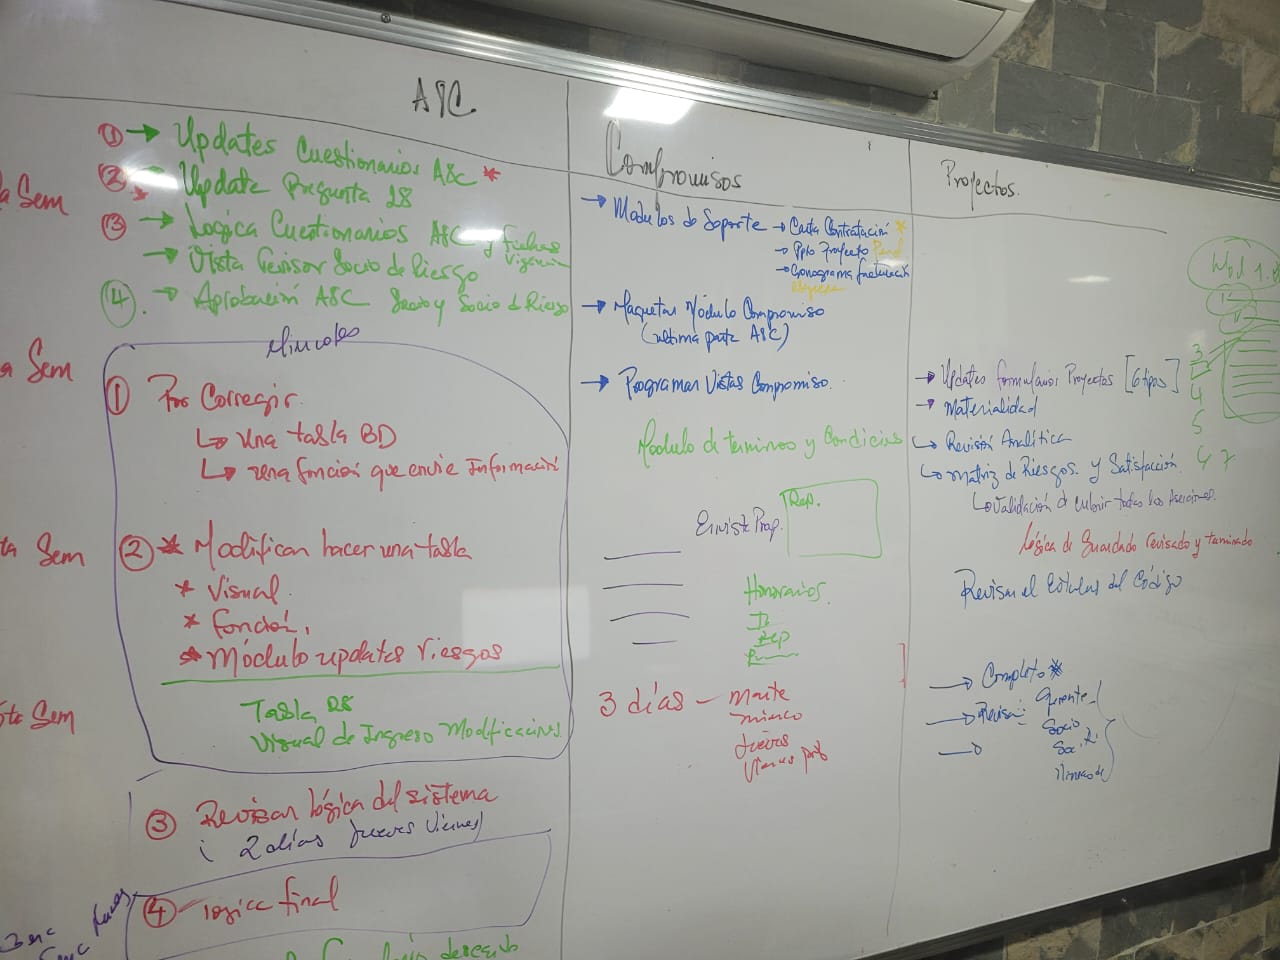 A&C
① → Updates Cuestionarios A&C *
② Update Pregunta 28
③ → Lógica Cuestionarios A&C y fechas
Vigencia
→ Vista Revisor Socio de Riesgo
④ → Aprobación A&C Socio y Socio de Riesgo
Sem
Sem
Sem
Sem
Miercoles
① Por Corregir
↳ Una tabla BD
↳ una función que envie Información
② * Modifican hacer una tabla
* Visual
* función,
* Módulo updates riesgos
Tabla 28
Visual de Ingreso Modificaciones
③ Revisar lógica del sistema
2 días Jueves Viernes
④ - logica final
Compromisos
→ Modulos de Soporte → Carta Contratación *
→ Ppto Proyecto Pend
→ Cronograma facturación
→ Maquetar Módulo Compromiso
(ultima parte A&C)
→ Programar Vistas Compromiso.
Modulo de terminos y Condicios
Rep.
Prop.
Honorarios.
3 días - Marte
Mierco
Jueves
Viernes
Proyectos.
→ Updates formularios Proyectos [6 tipos]
→ Materialidad
↳ Revisión Analítica
↳ Matriz de Riesgos y Satisfacción
↳ Validación de cubrir todas las Aserciones.
Lógica de Guardado revisado y terminado
Revisar el del Código
→ Completo *
→ Revisa: Gerente
Socio
Soc. R.
3
4
5
7